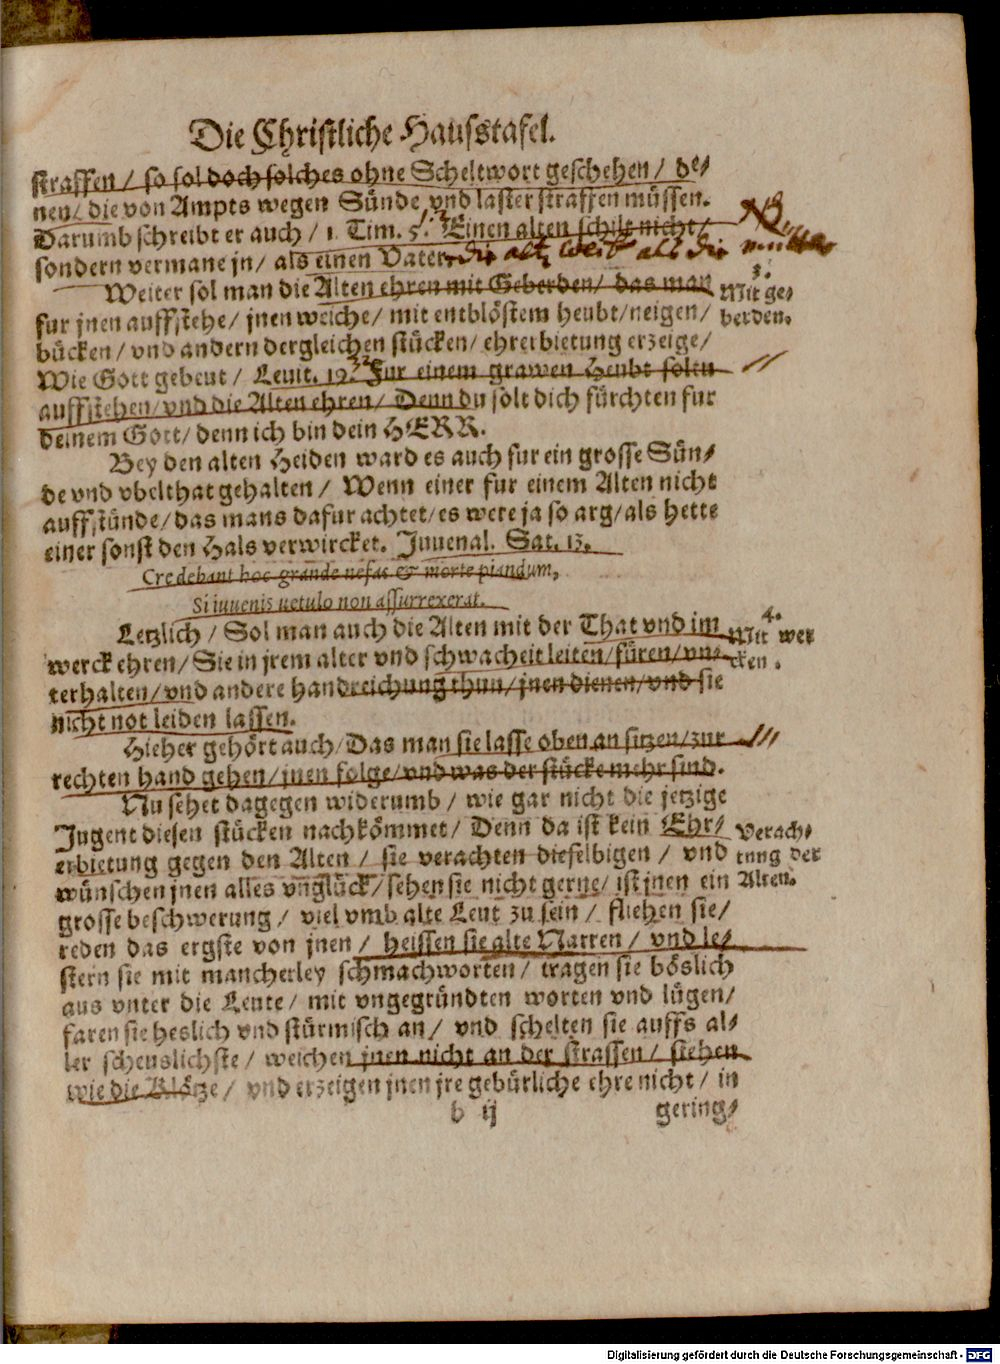 Die Christliche Haussstafel.
straffen / so sol doch solches ohne Scheltwort geschehen / de⸗
nen / die von Ampts wegen Sünde vnd laster straffen müssen.
Darumb schreibt er auch / 1. Tim. 5. Einen alten schilt nicht /
sondern vermane jn / als einen Vater. die alte weib als die mutter
NB.
Weiter sol man die Alten ehren mit Geberden / das man
fur jnen auffstehe / jnen weiche / mit entblöstem heubt / neigen /
bücken / vnd andern dergleichen stücken / ehrerbietung erzeige /
3.
Mit ge⸗
berden.
Wie Gott gebeut / Leuit. 19. Fur einem grawen Heubt soltu
auffstehen / vnd die Alten ehren / Denn du solt dich fürchten fur
deinem Gott / denn ich bin dein HERR.
Bey den alten Heiden ward es auch fur ein grosse Sün⸗
de vnd vbelthat gehalten / Wenn einer fur einem Alten nicht
auffstünde / das mans dafur achtet / es were ja so arg / als hette
einer sonst den Hals verwircket. Juuenal. Sat. 13.
Credebant hoc grande nefas & morte piandum,
Si iuuenis uetulo non assurrexerat.
Letzlich / Sol man auch die Alten mit der That vnd im
werck ehren / Sie in jrem alter vnd schwacheit leiten / füren / vn⸗
terhalten / vnd andere handreichung thun / jnen dienen / vnd sie
nicht not leiden lassen.
4.
Mit wer
cken.
Hieher gehört auch / Das man sie lasse oben an sitzen / zur
rechten hand gehen / jnen folge / vnd was der stücke mehr sind.
Nu sehet dagegen widerumb / wie gar nicht die jetzige
Jugent diesen stücken nachkömmet / Denn da ist kein Ehr⸗
erbietung gegen den Alten / sie verachten dieselbigen / vnd
wünschen jnen alles vnglück / sehen sie nicht gerne / ist jnen ein
Verach⸗
tung der
Alten.
grosse beschwerung / viel vmb alte Leut zu sein / fliehen sie /
reden das ergste von jnen / heissen sie alte Narren / vnd le⸗
stern sie mit mancherley schmachworten / tragen sie böslich
aus vnter die Leute / mit vngegründten worten vnd lügen /
faren sie heslich vnd stürmisch an / vnd schelten sie auffs al⸗
ler scheuslichste / weichen jnen nicht an der strassen / stehen
wie die Klötze / vnd erzeigen jnen jre gebürliche ehre nicht / in
b ij
gering⸗
Digitalisierung gefördert durch die Deutsche Forschungsgemeinschaft - DFG